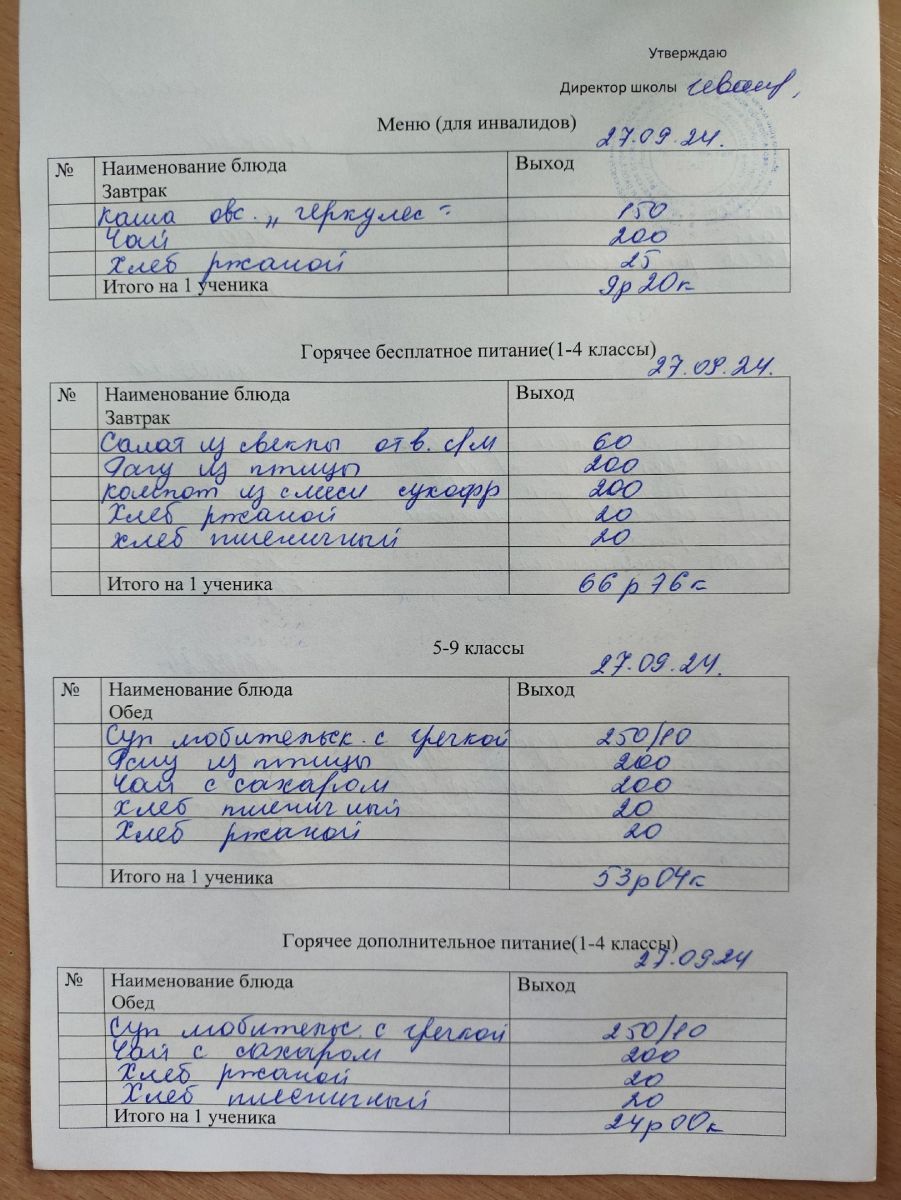 Утверждаю
Директор школы
Меню (для инвалидов)
27.09.24.
№ Наименование блюда Выход
Завтрак
Каша овс. „ геркулес " 150
Чай 200
Хлеб ржаной 25
Итого на 1 ученика 9р 20к
Горячее бесплатное питание(1-4 классы)
27.09.24.
№ Наименование блюда Выход
Завтрак
Салат из свеклы отв. с/м 60
Рагу из птицы 200
Компот из смеси сухофр 200
Хлеб ржаной 20
хлеб пшеничный 20
Итого на 1 ученика 66 р 76 к
5-9 классы
27.09.24.
№ Наименование блюда Выход
Обед
Суп любительск. с гречкой 250/10
Рагу из птицы 200
Чай с сахаром 200
Хлеб пшеничный 20
Хлеб ржаной 20
Итого на 1 ученика 53р 04к
Горячее дополнительное питание(1-4 классы)
27.09.24
№ Наименование блюда Выход
Обед
Суп любительс. с гречкой 250/10
Чай с сахаром 200
Хлеб ржаной 20
Хлеб пшеничный 20
Итого на 1 ученика 24р 00к